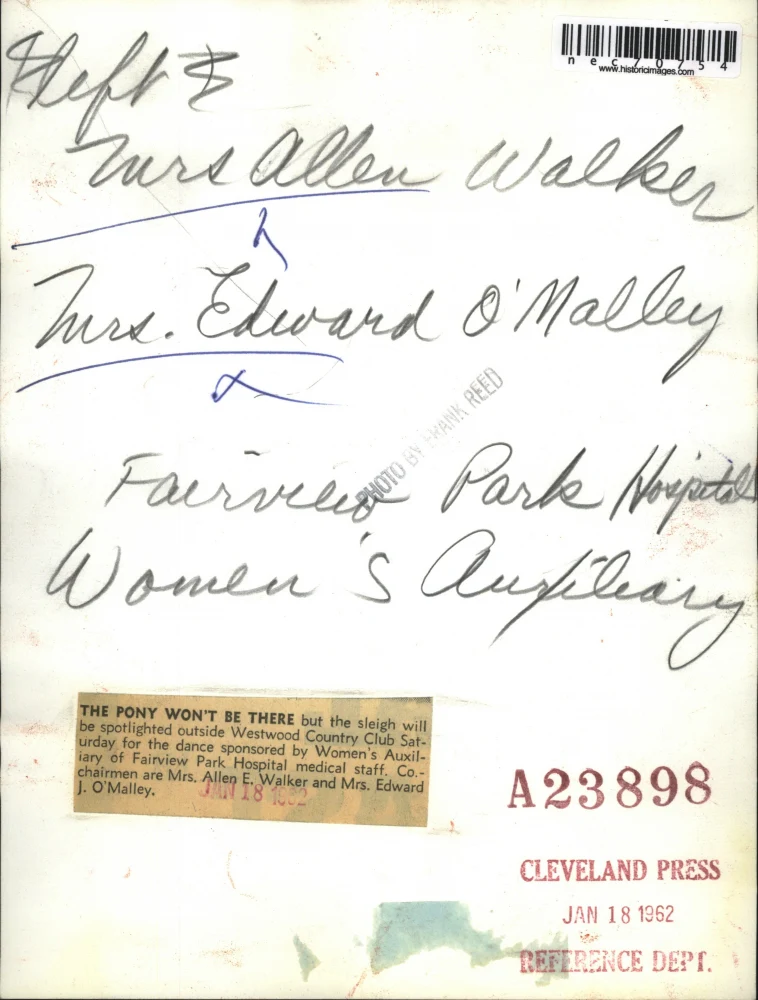 nec70754
www.historicimages.com
left
Mrs Allen Walker
Mrs. Edward O'Malley
PHOTO BY FRANK REED
Fairview Park Hospital
Women's Auxiliary
THE PONY WON'T BE THERE but the sleigh will
be spotlighted outside Westwood Country Club Sat-
urday for the dance sponsored by Women's Auxil-
iary of Fairview Park Hospital medical staff. Co.-
chairmen are Mrs. Allen E. Walker and Mrs. Edward
J. O'Malley.
JAN 18 1962
A23898
CLEVELAND PRESS
JAN 18 1962
REFERENCE DEPT.